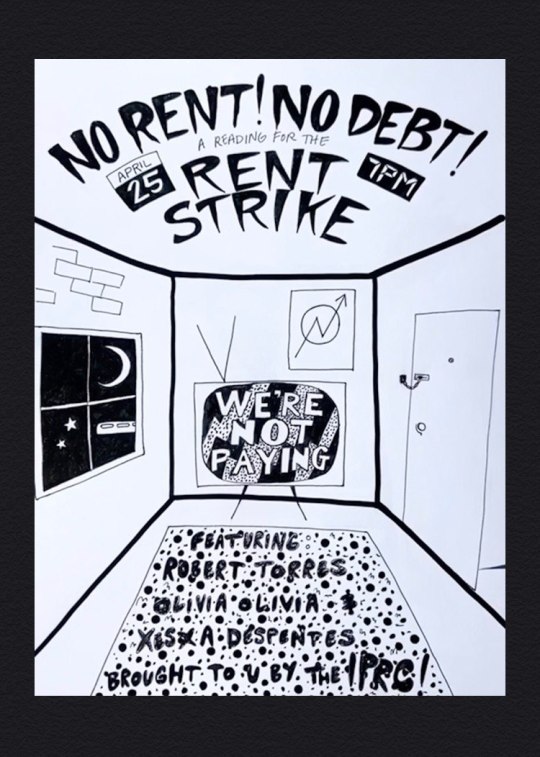 NO RENT! NO DEBT!
A READING FOR THE
APRIL
25
RENT
7PM
STRIKE
WE'RE
NOT
PAYING
FEATURING:
ROBERT TORRES
OLIVIA OLIVIA &
A. DESPENTES
BROUGHT TO U BY THE IPRC!